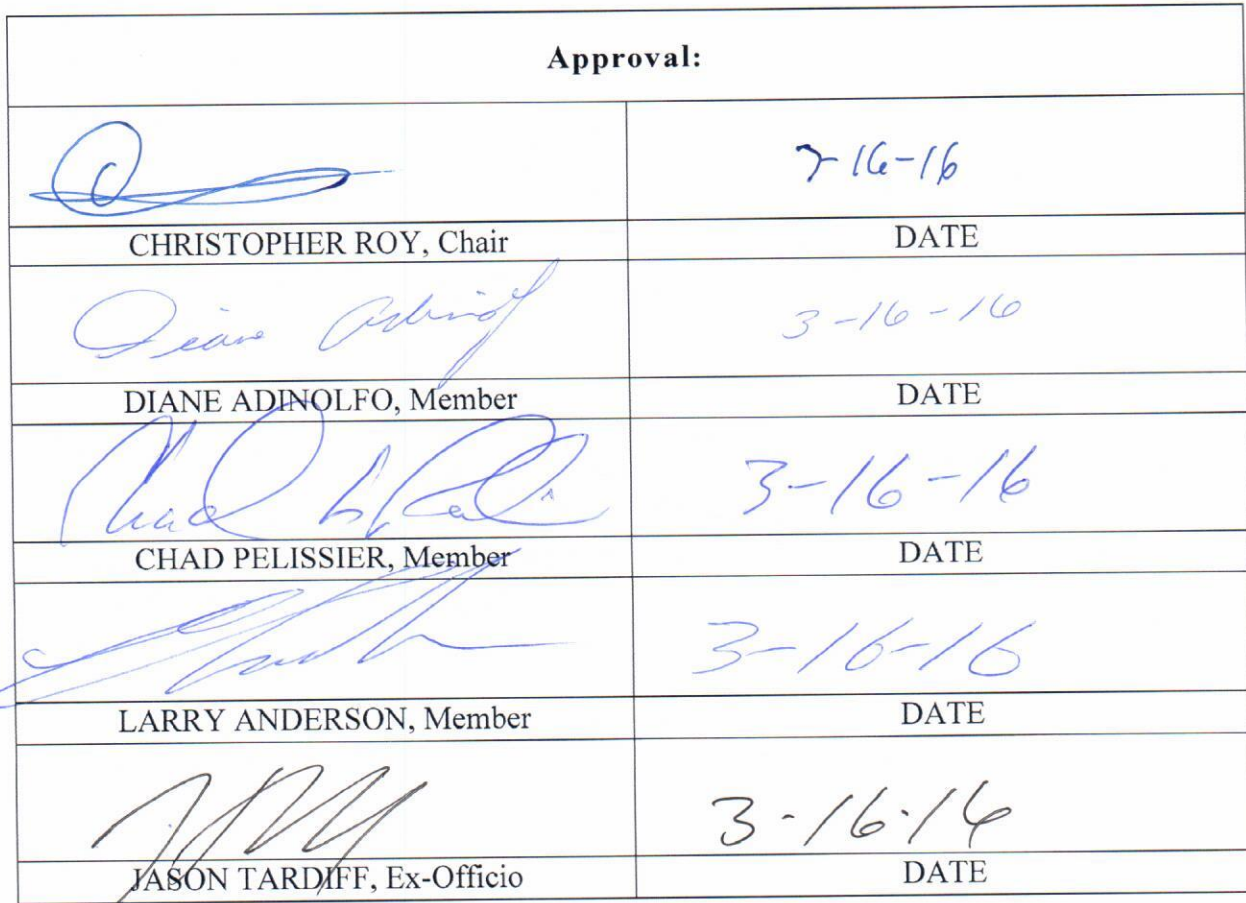 Approval:
3-16-16
CHRISTOPHER ROY, Chair DATE
Diane Adinolf 3-16-16
DIANE ADINOLFO, Member DATE
3-16-16
CHAD PELISSIER, Member DATE
3-16-16
LARRY ANDERSON, Member DATE
3-16-16
JASON TARDIFF, Ex-Officio DATE